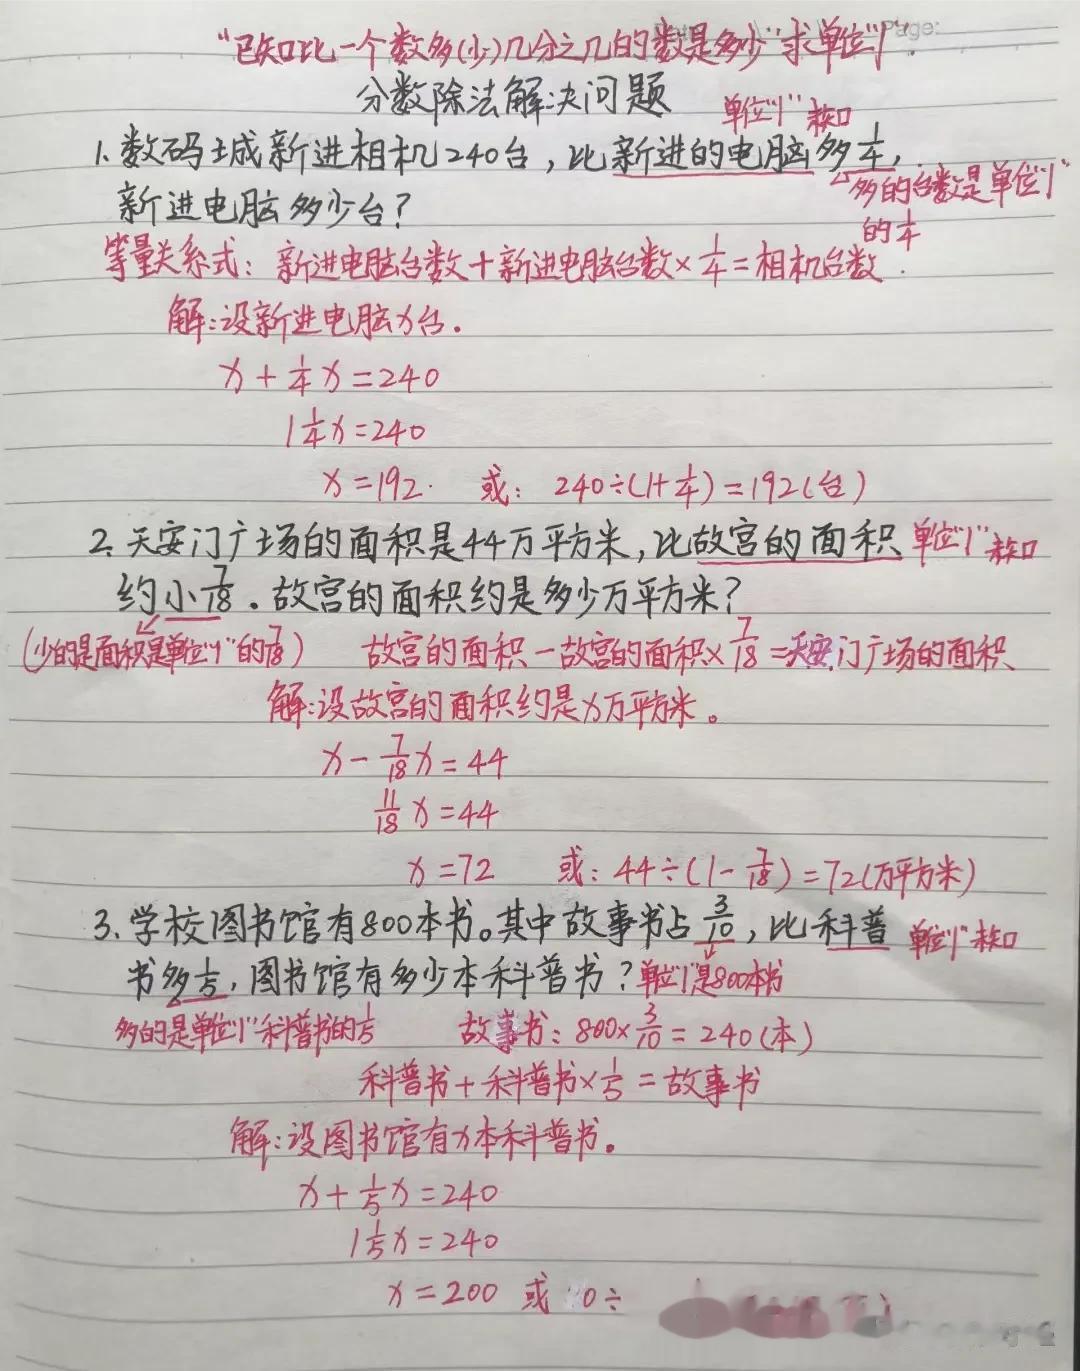 Page:
"已知比一个数多(少)几分之几的数是多少"求单位"1".
分数除法解决问题
单位"1"未知
1.数码城新进相机240台,比新进的电脑多1/4,
多的台数是单位"1"
新进电脑多少台?
的1/4
等量关系式:新进电脑台数+新进电脑台数×1/4=相机台数.
解:设新进电脑x台.
x+1/4x=240
1 1/4x=240
x=192. 或: 240÷(1+1/4)=192(台)
2.天安门广场的面积是44万平方米,比故宫的面积 单位"1"未知
约小7/18。故宫的面积约是多少万平方米?
(少的是面积是单位"1"的7/18) 故宫的面积-故宫的面积×7/18=天安门广场的面积
解:设故宫的面积约是x万平方米。
x-7/18x=44
11/18x=44
x=72 或: 44÷(1-7/18)=72(万平方米)
3.学校图书馆有800本书。其中故事书占3/10,比科普 单位"1"未知
书多1/5,图书馆有多少本科普书?单位"1"是800本书
多的是单位"1"科普书的1/5 故事书:800×3/10=240(本)
科普书+科普书×1/5=故事书
解:设图书馆有x本科普书。
x+1/5x=240
1 1/5x=240
x=200 或 0÷